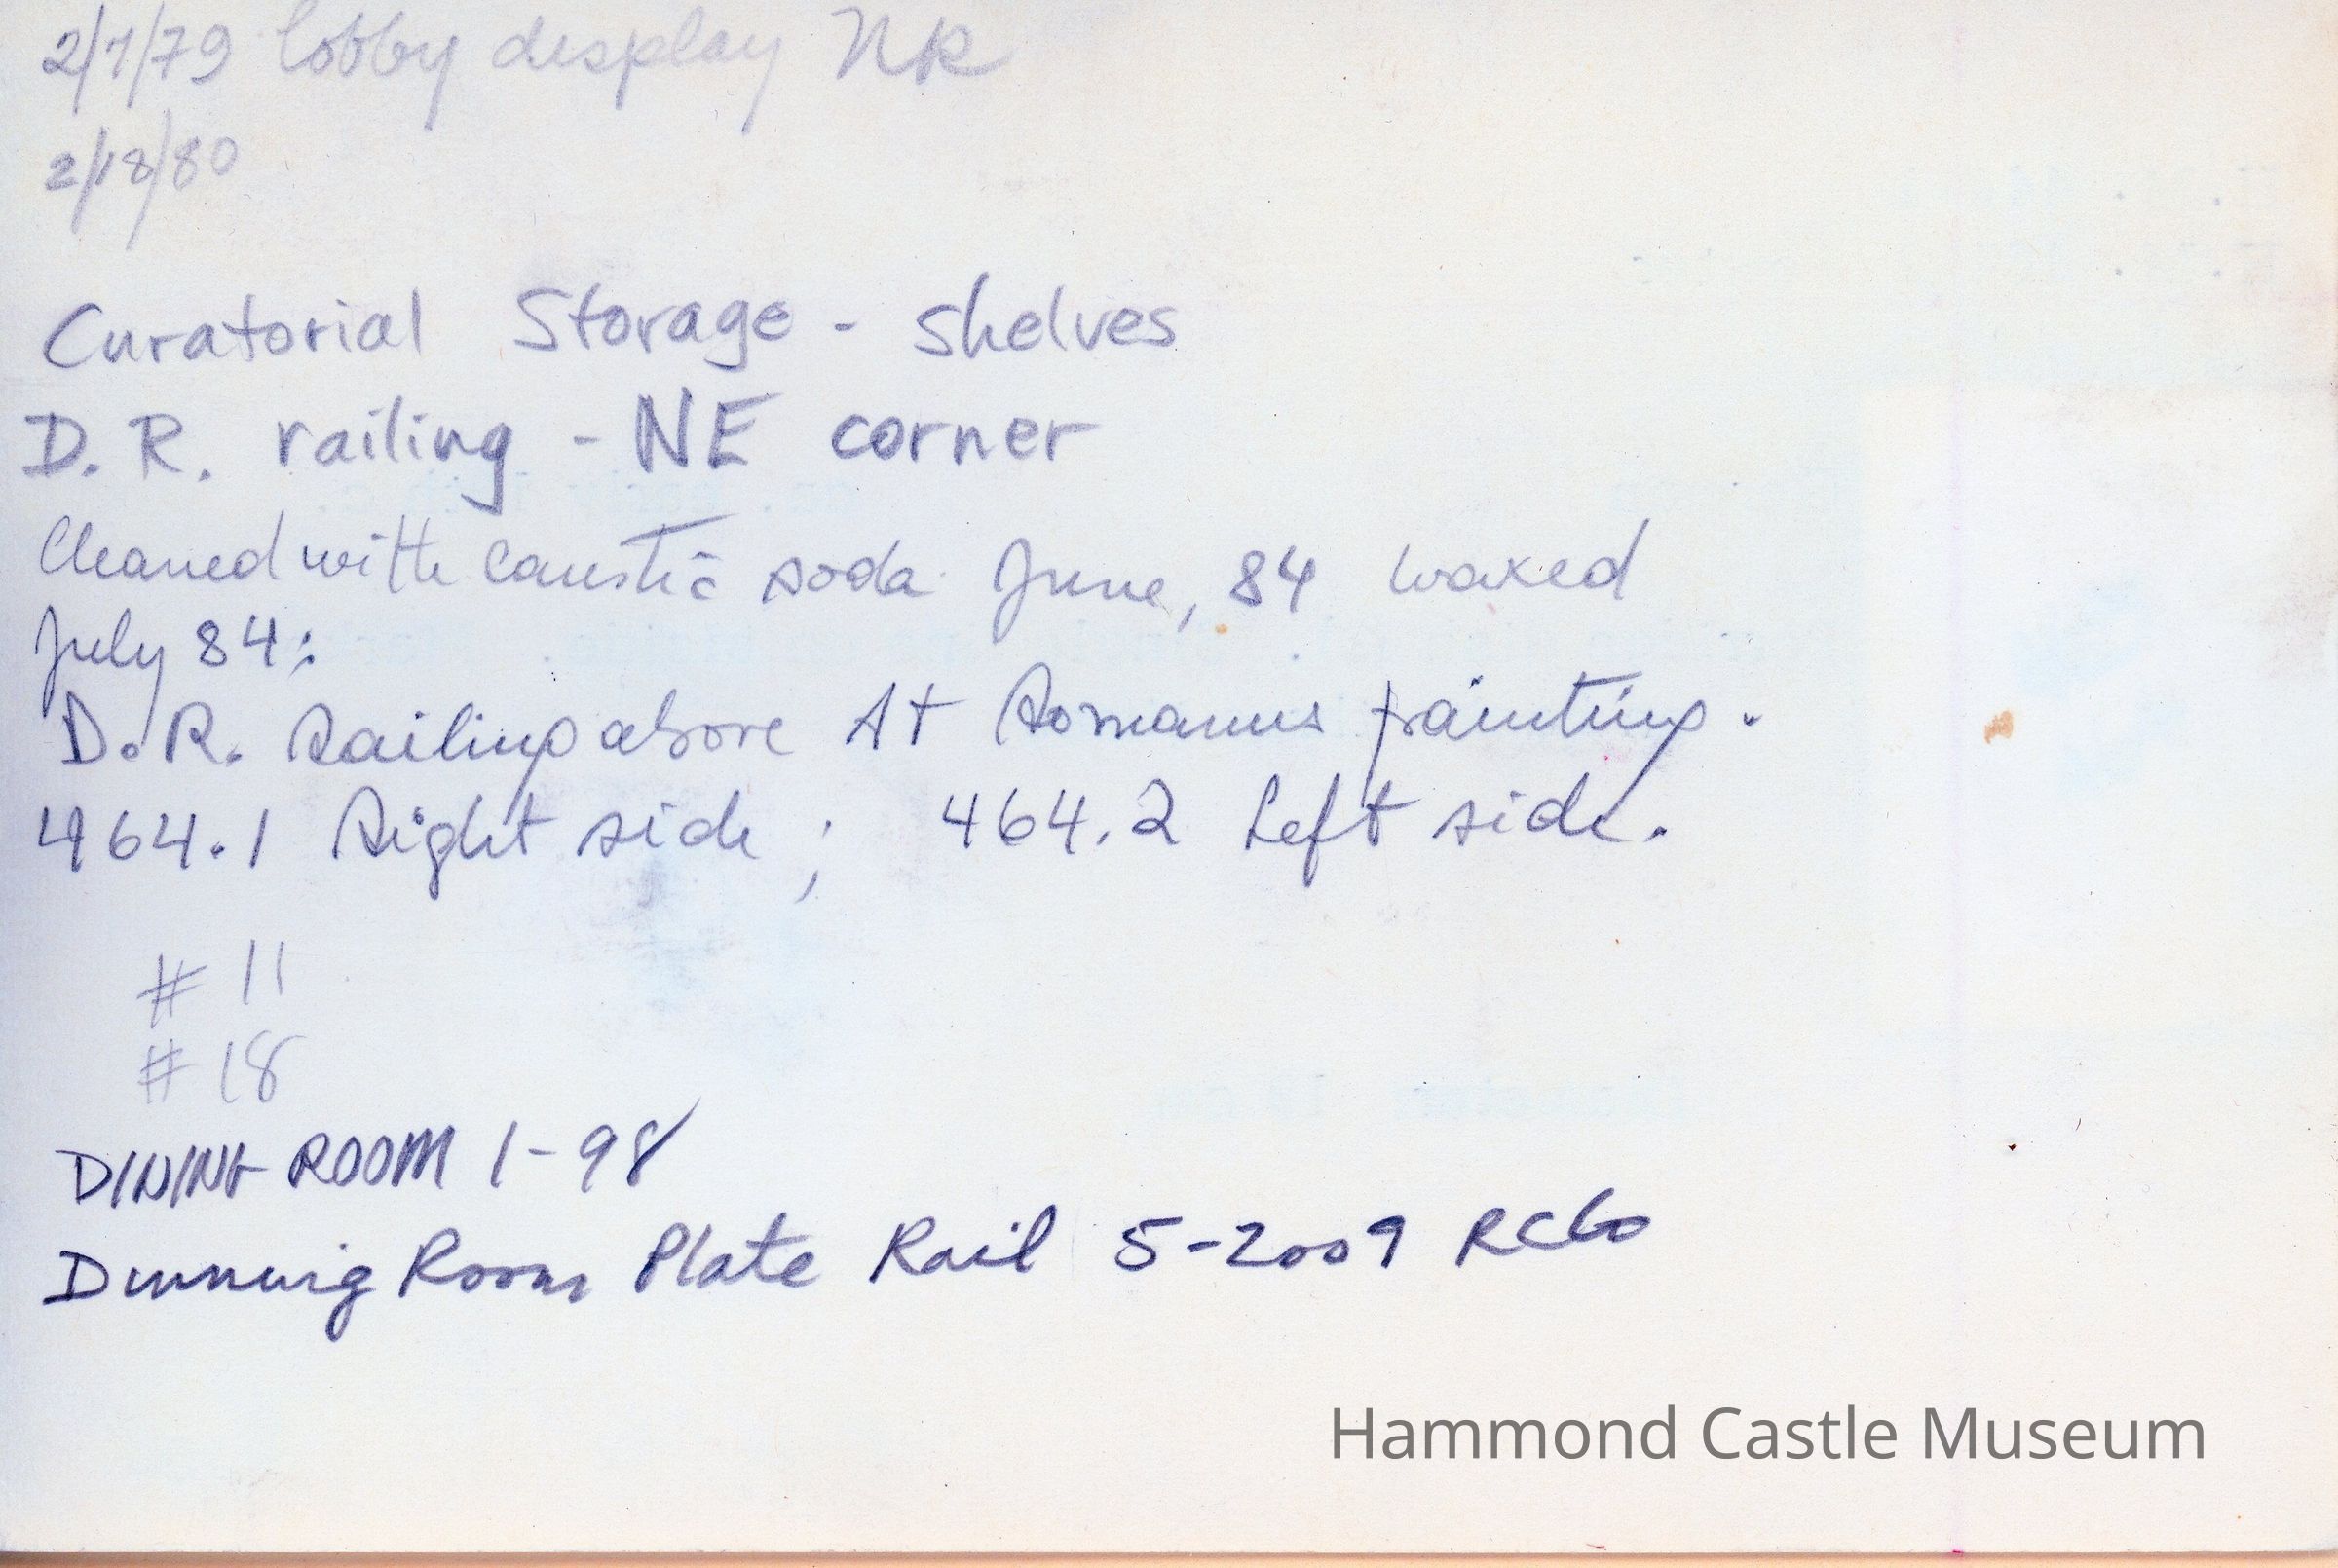 2/7/79 lobby display NR
2/18/80
Curatorial Storage - shelves
D.R. railing - NE corner
Cleaned with caustic soda June, 84 waxed
July 84:
D.R. Railing above St Romanus painting.
464.1 Right side ; 464.2 Left side.
# 11
# 18
DINING ROOM 1-98
Dinning Room Plate Rail 5-2009
Hammond Castle Museum